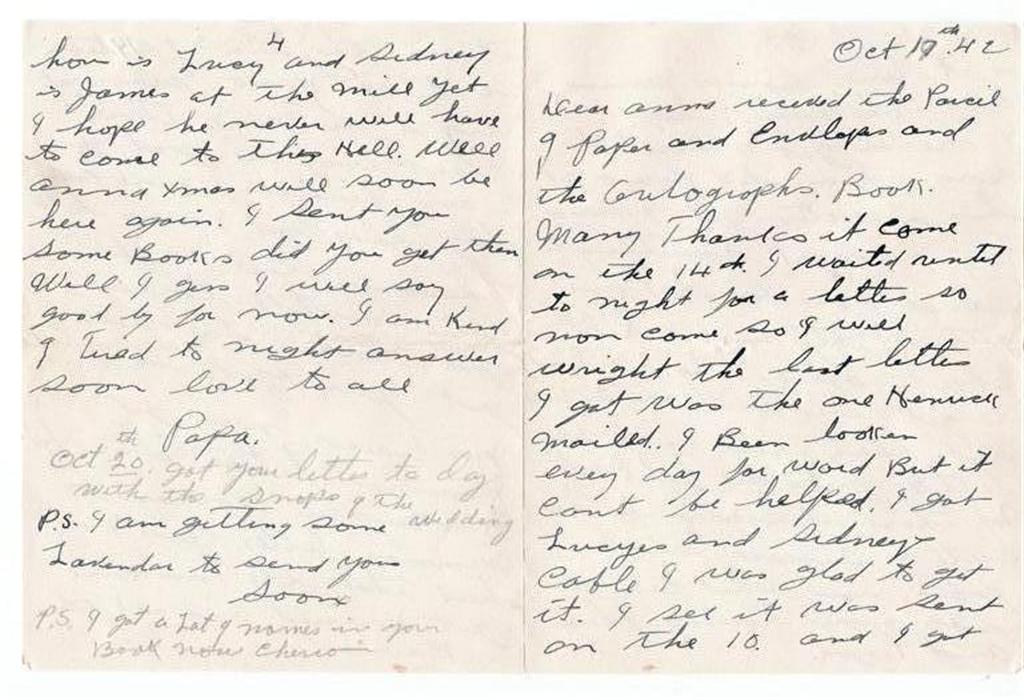 Oct 19th. 42
Dear anna receved the Parcil
of Paper and Envlops and
the Autographs. Book.
Many Thanks it come
on the 14th. I waited until
to night for a letter so
non come so I will
wright the last letter
I got was the one Henrick
mailed. I Been looken
every day for word But it
cant be helped. I got
Lucyes and Sidneys
Cable I was glad to get
it. I see it was sent
on the 10. and I got
4
how is Lucy and Sidney
is James at the mill yet
I hope he never will have
to come to this Hell. Well
anna Xmas will soon be
here again. I sent you
some Books did you get them
Well I gess I will say
good by for now. I am Kind
of Tired to night answer
soon love to all
Papa.
Oct 20th. got your letter to day
with the snaps of the wedding
P.S. I am getting some
Lavendar to send you
soon
P.S. I got a Lot of names in your
Book now Cherio